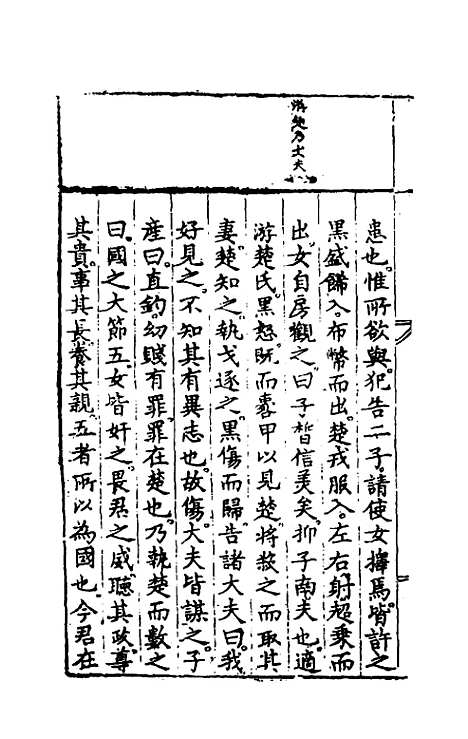 游楚乃大夫
患也惟所欲與犯告二子請使女擇焉皆許之
黑盛餙入布幣而出楚戎服入左右射超乘而
出女自房觀之曰子晳信美矣抑子南夫也適
游楚氏黑怒既而櫜甲以見楚將殺之而取其
妻楚知之執戈逐之黑傷而歸告諸大夫曰我
好見之不知其有異志也故傷大夫皆謀之子
産曰直鈞幼賤有罪罪在楚也乃執楚而數之
曰國之大節五女皆奸之畏君之威聽其政尊
其貴事其長養其親五者所以為國也今君在